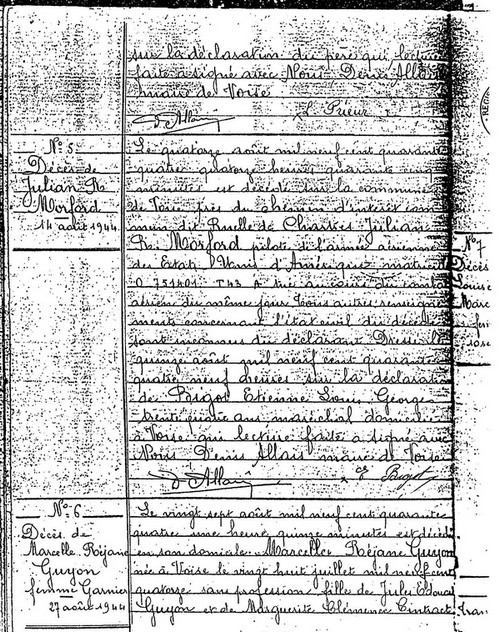 sur la déclaration du père qui, lecture
faite a signé avec Nous Denis Allais
maire de Voise
D. Allais L. Prieur
N° 5
Décès de
Julian R.
Morford
14 août 1944
Le quatorze août mil neuf cent quarante
quatre quatorze heures quarante cinq
minutes est décédé sur la commune
de Voise près du chemin d'intérêt com
mun dit Ruelle de Chartres Julian
R. Morford pilote de l'armée aérienne
des Etats Unis d'Amérique matricule
O 751401 T43 A tué au cours du combat
aérien du même jour Tous autres renseigne
ments concernant l'état civil du décédé
sont inconnus du déclarant Dressé le
quinze août mil neuf cent quarante
quatre neuf heures sur la déclaration
de Bigot Etienne Louis Georges
trente quatre ans maréchal domicilié
à Voise qui lecture faite a signé avec
Nous Denis Allais maire de Voise
D. Allais Bigot
N° 6
Décès de
Marcelle Réjane
Guyon
femme Garnier
27 août 1944
Le vingt sept août mil neuf cent quarante
quatre une heure quinze minutes est décédée
en son domicile Marcelle Réjane Guyon
née à Voise le vingt huit juillet mil neuf cent
quatorze sans profession fille de Jules Edouard
Guyon et de Marguerite Clémence Cintract
N° 7
Décès
Louise